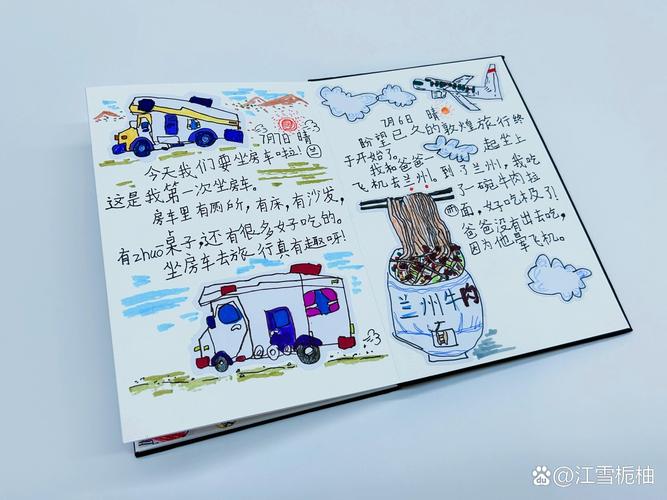 7月7日 晴
今天我们要坐房车啦!
这是我第一次坐房车。
房车里有厕所,有床,有沙发,
有zhuō桌子,还有很多好吃的。
坐房车去旅行真有趣呀!
7月6日 晴
盼望已久的敦煌旅行终
于开始了。
我和爸爸一起坐上
飞机去兰州。到了兰州,我吃
了一碗牛肉拉
面,好吃极了!
爸爸没有出去吃,
因为他晕飞机。
兰州牛肉
面
江雪栀柚